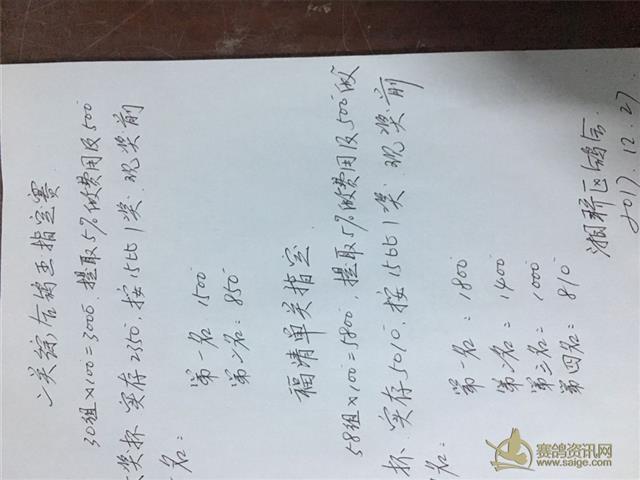 二关综合鸽王指定赛
30组×100=3000, 提取5%做费用及500
奖杯. 实存2350. 按15比1奖. 现奖前
名:
第一名: 1500
第二名: 850
福清单关指定
58组×100=5800, 提取5%做费用及500做
杯. 实存5010. 按15比1奖. 现奖前
名:
第一名: 1800
第二名: 1400
第三名: 1000
第四名: 810
湘桥区鸽会
2017.12.27
赛鸽资讯网
www.saige.com